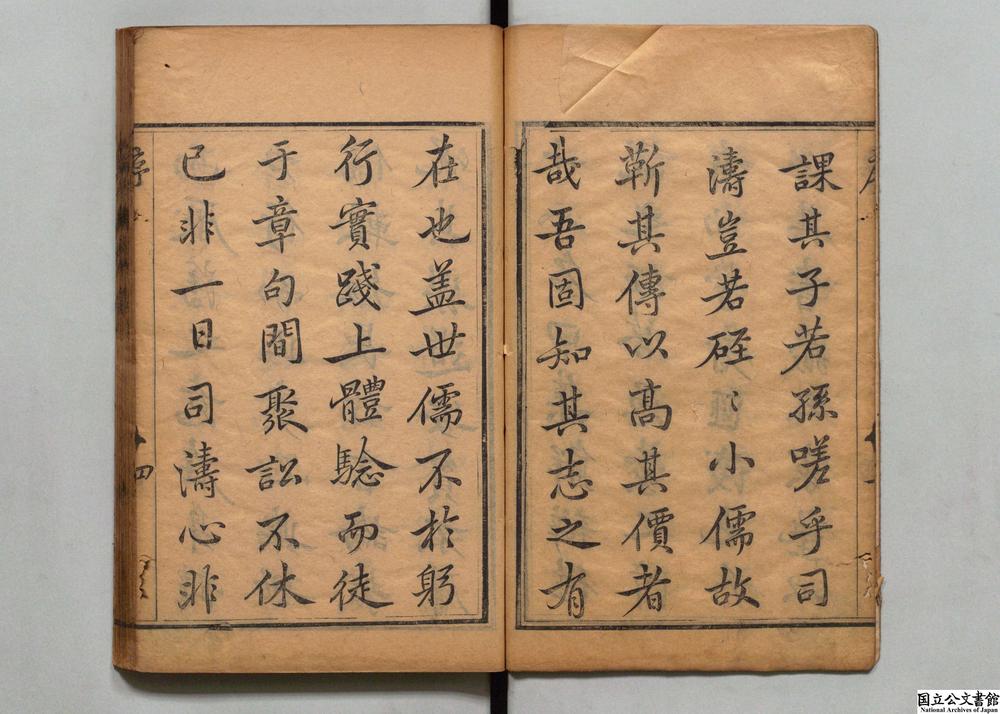 課其子若孫嗟乎司
濤豈若硜〻小儒故
蘄其傳以高其價者
哉吾固知其志之有
在也盖世儒不於躬
行實踐上體騐而徒
于章句間聚訟不休
已非一日司濤心非
序
四
国立公文書館
National Archives of Japan